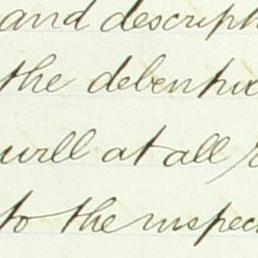 and descript
the debentu
will at all
to the inspec